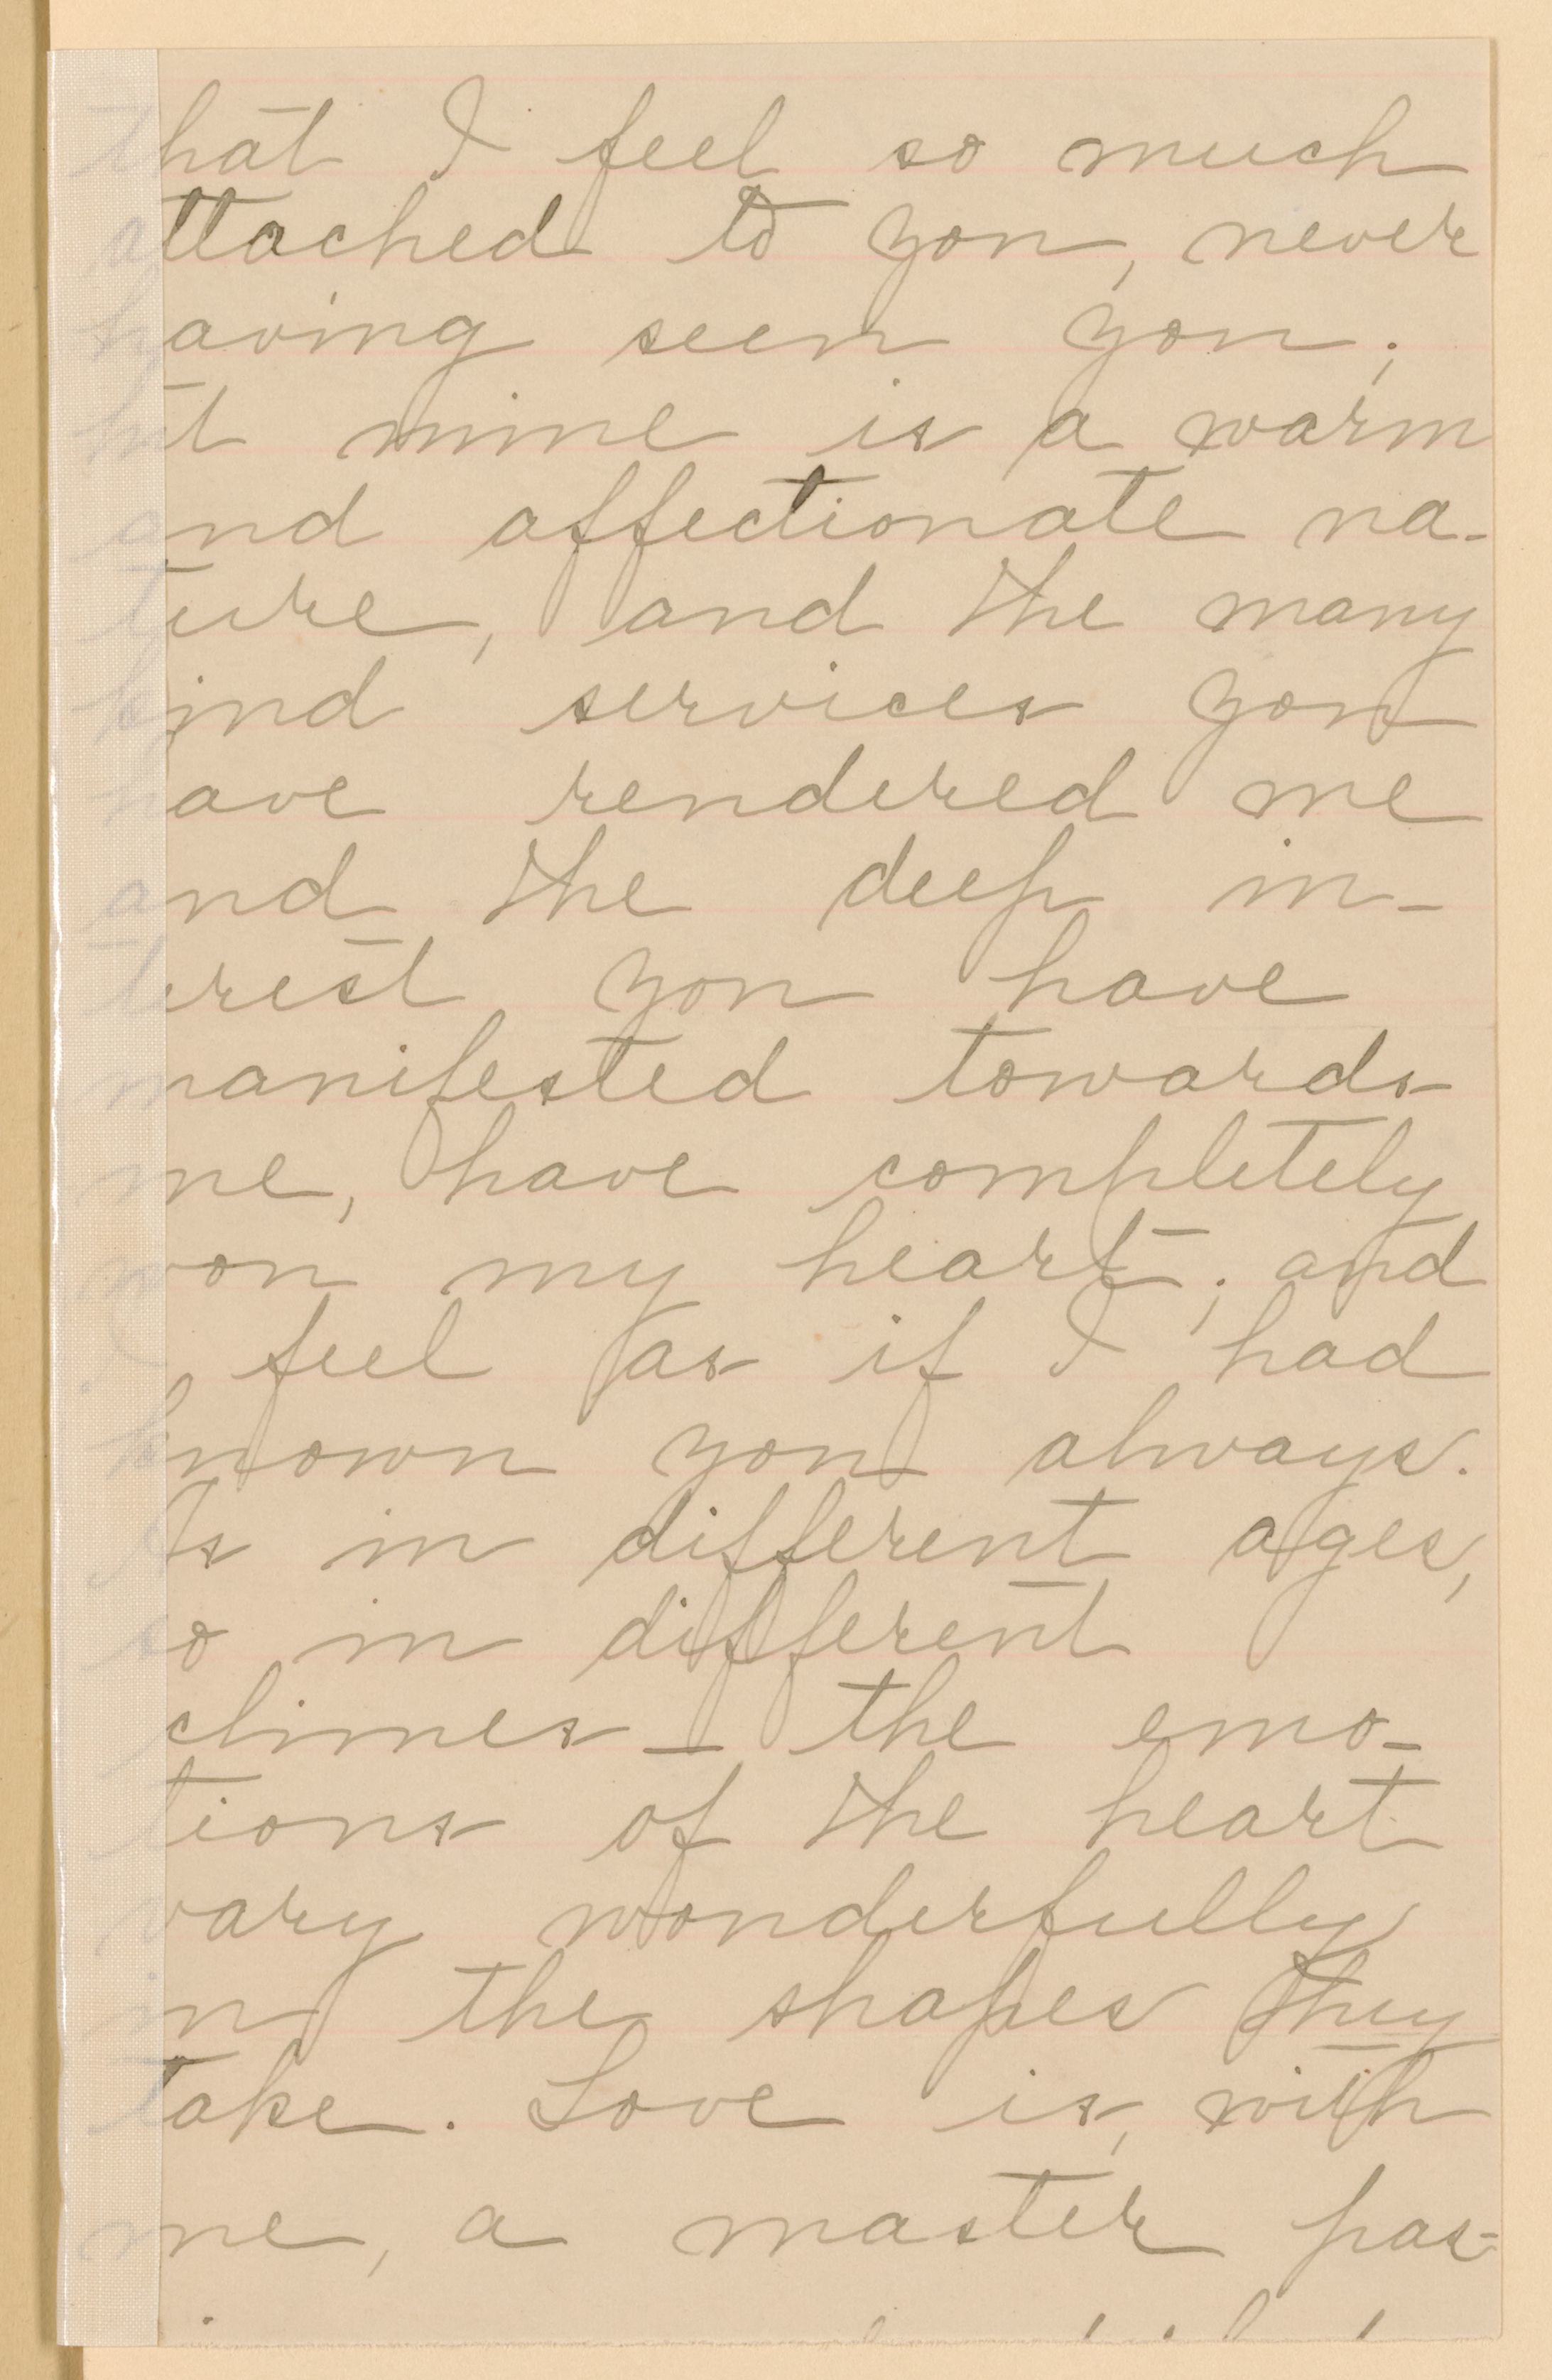 that I feel so much
attached to you, never
having seen you;
but mine is a warm
and affectionate na-
ture, and the many
kind services you
have rendered me
and the deep in-
terest you have
manifested towards
me, have completely
won my heart; and
I feel as if I had
known you always.
As in different ages,
so in different
climes – the emo-
tions of the heart
vary wonderfully
in the shapes they
take. Love is, with
me, a master pas-